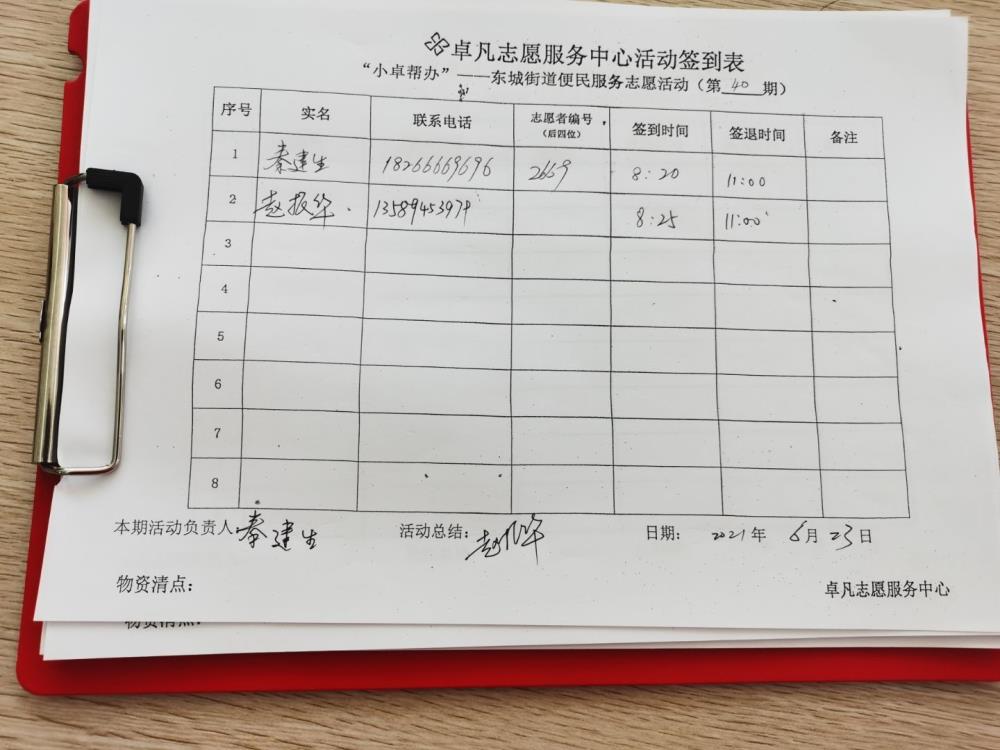 卓凡志愿服务中心活动签到表
“小卓帮办”——东城街道便民服务志愿活动（第 40 期）
序号 实名 联系电话 志愿者编号（后四位） 签到时间 签退时间 备注
1 秦建生 18266669696 2669 8:20 11:00
2 赵振华 1358945397 8:25 11:00
3
4
5
6
7
8
本期活动负责人 秦建生 活动总结： 赵振华 日期： 2021年 6月 23日
物资清点： 卓凡志愿服务中心
物资清点：